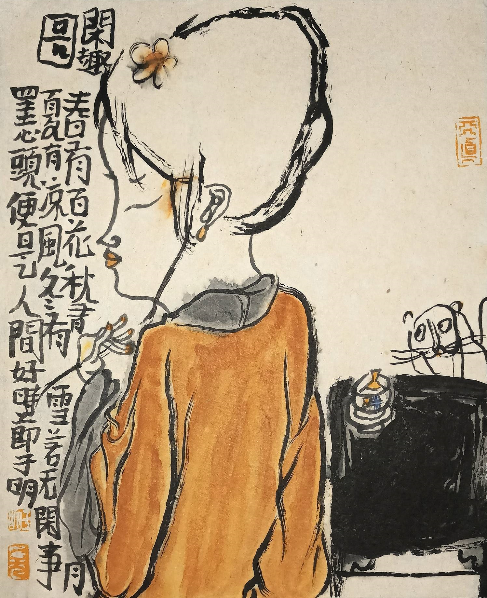 閑趣
圖
春有百花秋有月
夏有凉風冬有雪若无閑事
罣心頭便是人間好時節子明